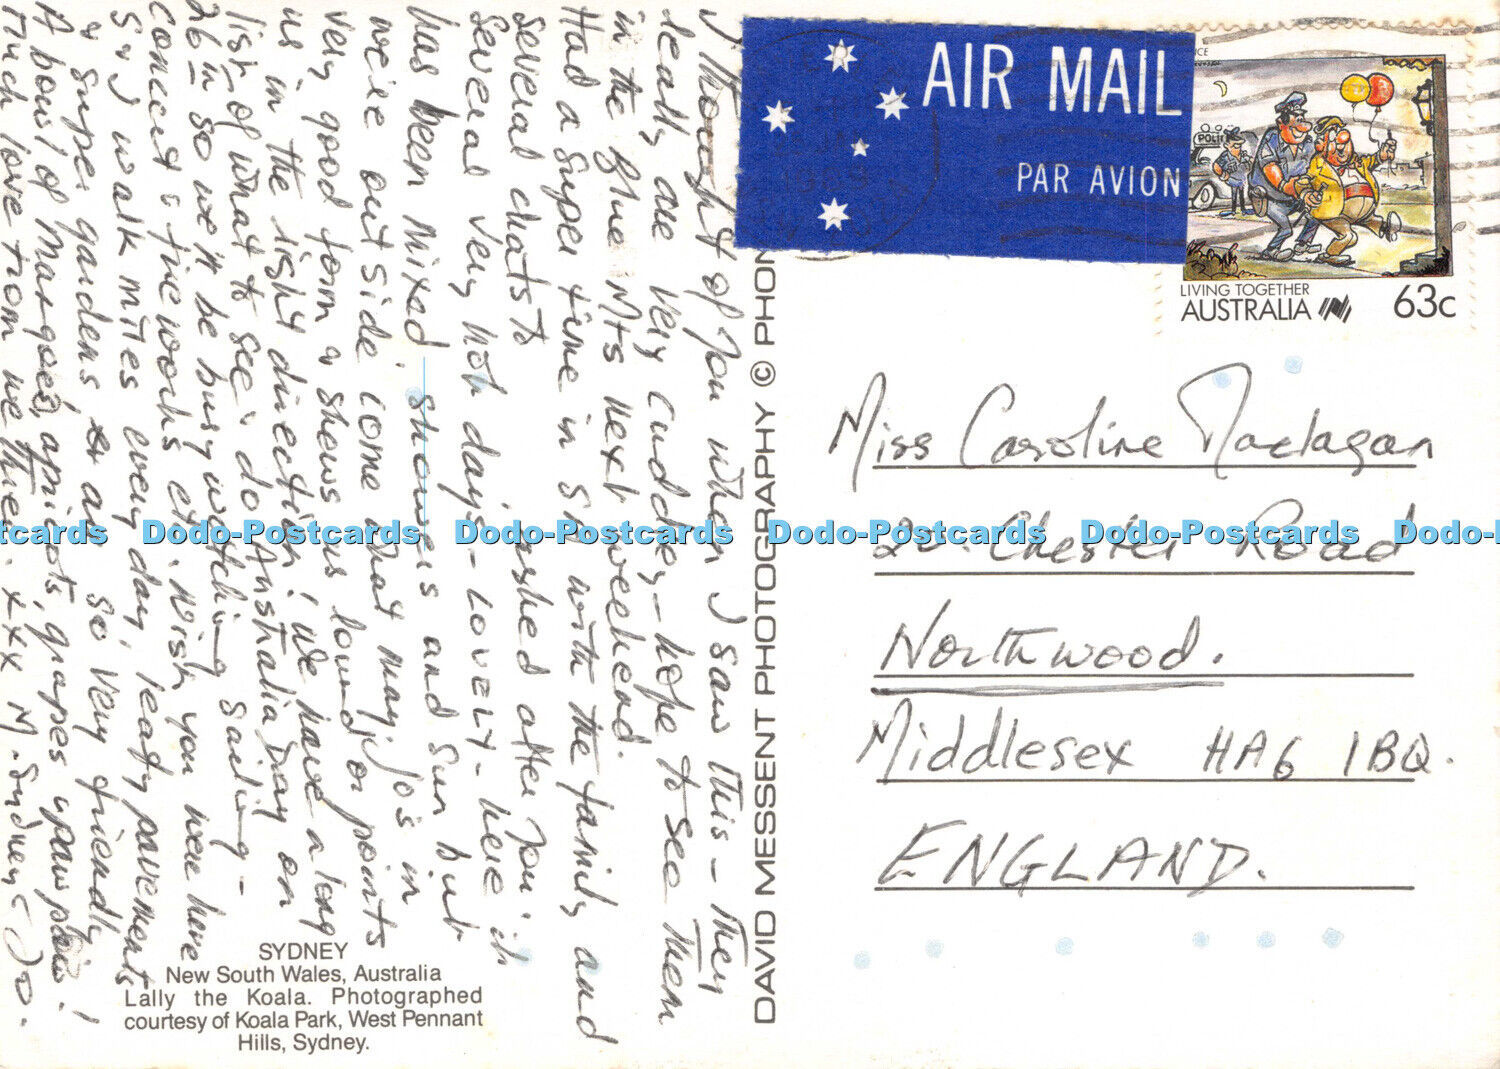 AIR MAIL
PAR AVION
POLICE
LIVING TOGETHER
AUSTRALIA
63c
Miss Caroline Maclagan
20 Chester Road
Northwood.
Middlesex HA6 1BQ.
ENGLAND.
DAVID MESSENT PHOTOGRAPHY © PHON
I thought of you when I saw this - They
really are very cuddley - hope to see them
in the Blue Mts next weekend.
Had a super time in S with the family and
several chats to asked after you : it
several very hot days - LOVELY - here it
has been mixed showers and sun but
we're outside come what may. Jo's in
very good form & shews us round or points
us in the right direction! We have a long
list of what to see & do. Australia Day on
26th so we'll be busy watching sailing -
concert & fireworks etc. Wish you were here
S & J walk miles every day, leafy pavements
& super gardens & all so very friendly
A bowl of mangoes, apricots, grapes & paw paws!
Much love from we three. xxx M. Sydney (Jo.
SYDNEY
New South Wales, Australia
Lally the Koala. Photographed
courtesy of Koala Park, West Pennant
Hills, Sydney.
Dodo-Postcards Dodo-Postcards Dodo-Postcards Dodo-Postcards Dodo-Postcards